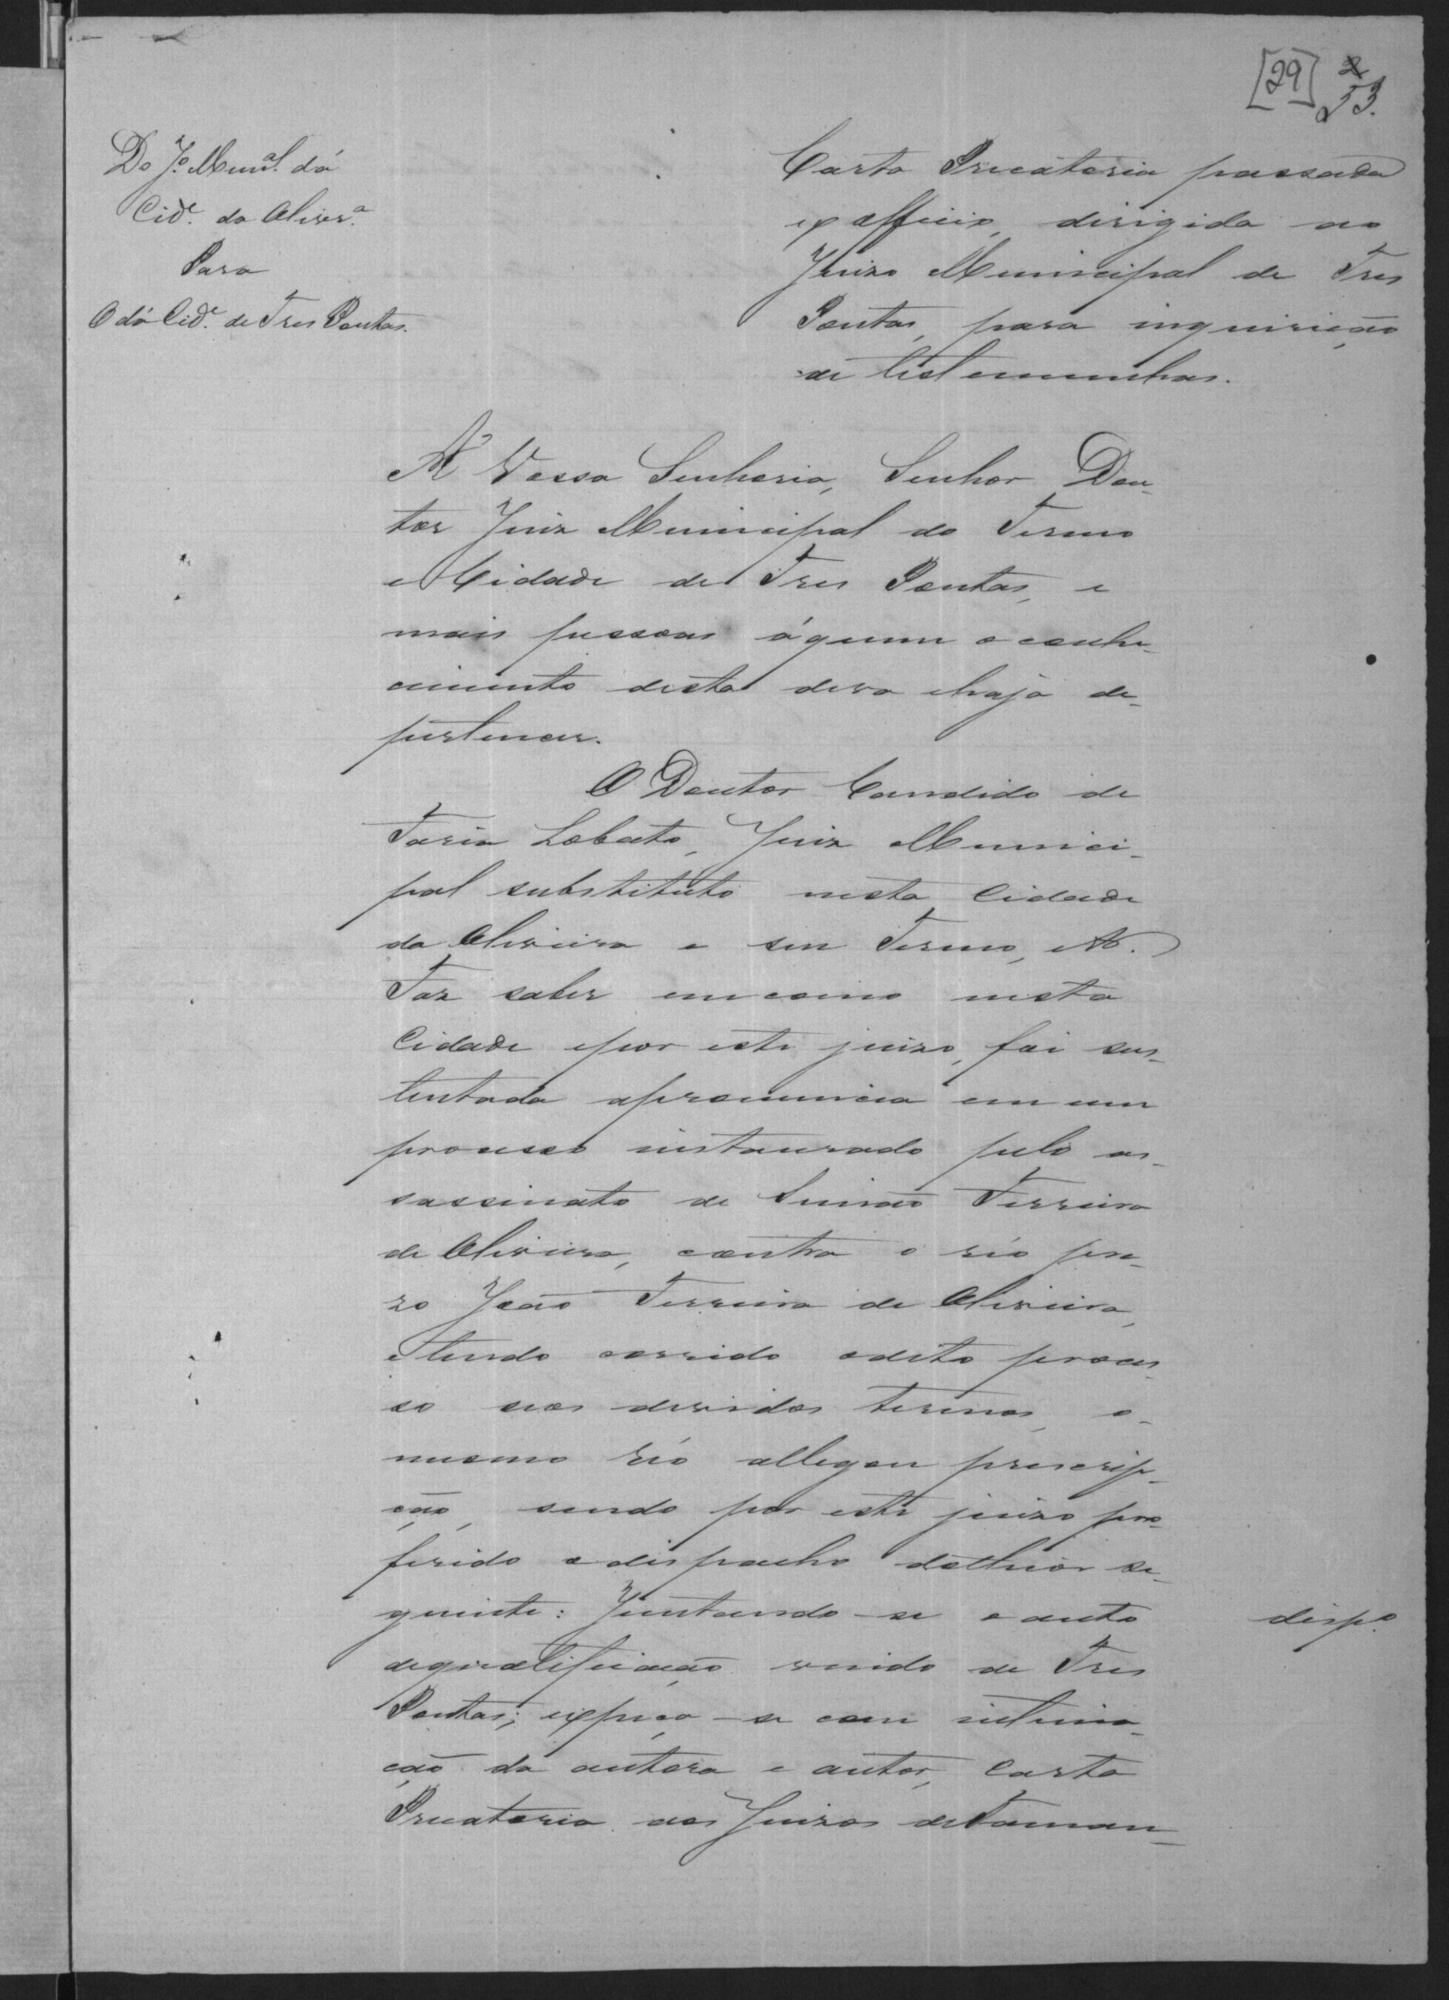 [29]
53.
Do Jº. Munal. dá
Cide. da Olivera.
Para
O dá Cide. de Tres Pontas.
Carta Precatoria passada
ex officio, dirigida ao
Juizo Municipal de Tres
Pontas, para inquirição
de testemunhas.
A' Vossa Senhoria, Senhor Dou-
tor Juiz Municipal do Termo
e Cidade de Tres Pontas, e
mais pessoas á quem o conhe-
cimento desta deva e haja de
pertencer.
O Doutor Candido de
Faria Lobato, Juiz Munici-
pal substituto nesta Cidade
da Oliveira e seu Termo, etc.
Faz saber em como nesta
Cidade e por este juizo, foi sus-
tentada apronuncia em um
processo instaurado pelo as-
sassinato de Simão Ferreira
de Oliveira, contra o réo pre-
zo João Ferreira de Oliveira,
e tendo corrido odito proces-
so nos devidos termos, o
mesmo réo allegou prescrip-
ção, sendo por este juizo pro-
ferido o dispacho dotheor se-
guinte: Juntando-se o auto
dequalificação vindo de Tres
Pontas; expeça-se com intima-
ção da autora e autor, Carta
Precatoria aos Juizos de Taman-
disp.o